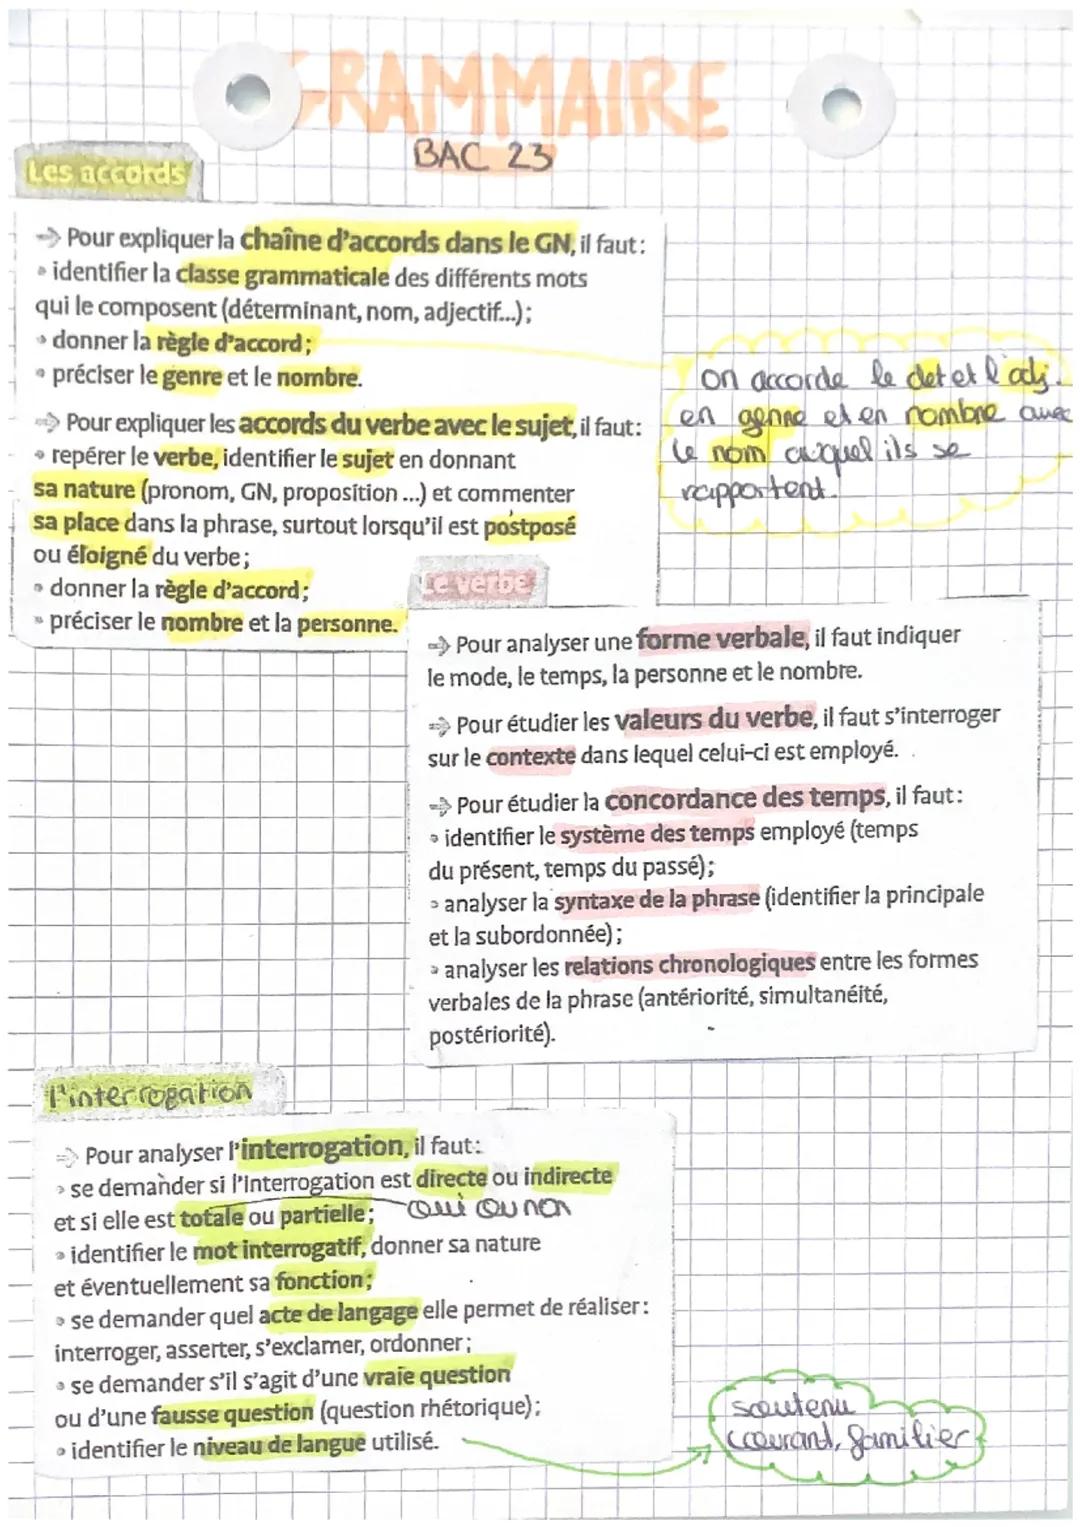 GRAMMAIRE
BAC 23
Les accords
⇒ Pour expliquer la chaîne d'accords dans le GN, il faut:
• identifier la classe grammaticale des différents mots
qui le composent (déterminant, nom, adjectif...);
• donner la règle d'accord;
• préciser le genre et le nombre.
on accorde le det et l'adj.
en genre et en nombre avec
le nom auquel ils se
rapportent.
⇒ Pour expliquer les accords du verbe avec le sujet, il faut:
• repérer le verbe, identifier le sujet en donnant
sa nature (pronom, GN, proposition ...) et commenter
sa place dans la phrase, surtout lorsqu'il est postposé
ou éloigné du verbe;
• donner la règle d'accord;
• préciser le nombre et la personne.
Le verbe
⇒ Pour analyser une forme verbale, il faut indiquer
le mode, le temps, la personne et le nombre.
⇒ Pour étudier les valeurs du verbe, il faut s'interroger
sur le contexte dans lequel celui-ci est employé.
⇒ Pour étudier la concordance des temps, il faut:
• identifier le système des temps employé (temps
du présent, temps du passé);
• analyser la syntaxe de la phrase (identifier la principale
et la subordonnée);
• analyser les relations chronologiques entre les formes
verbales de la phrase (antériorité, simultanéité,
postériorité).
l'interrogation
⇒ Pour analyser l'interrogation, il faut:
• se demander si l'interrogation est directe ou indirecte
et si elle est totale ou partielle; oui ou non
• identifier le mot interrogatif, donner sa nature
et éventuellement sa fonction;
• se demander quel acte de langage elle permet de réaliser:
interroger, asserter, s'exclamer, ordonner;
• se demander s'il s'agit d'une vraie question
ou d'une fausse question (question rhétorique);
• identifier le niveau de langue utilisé.
soutenu
courant, familier